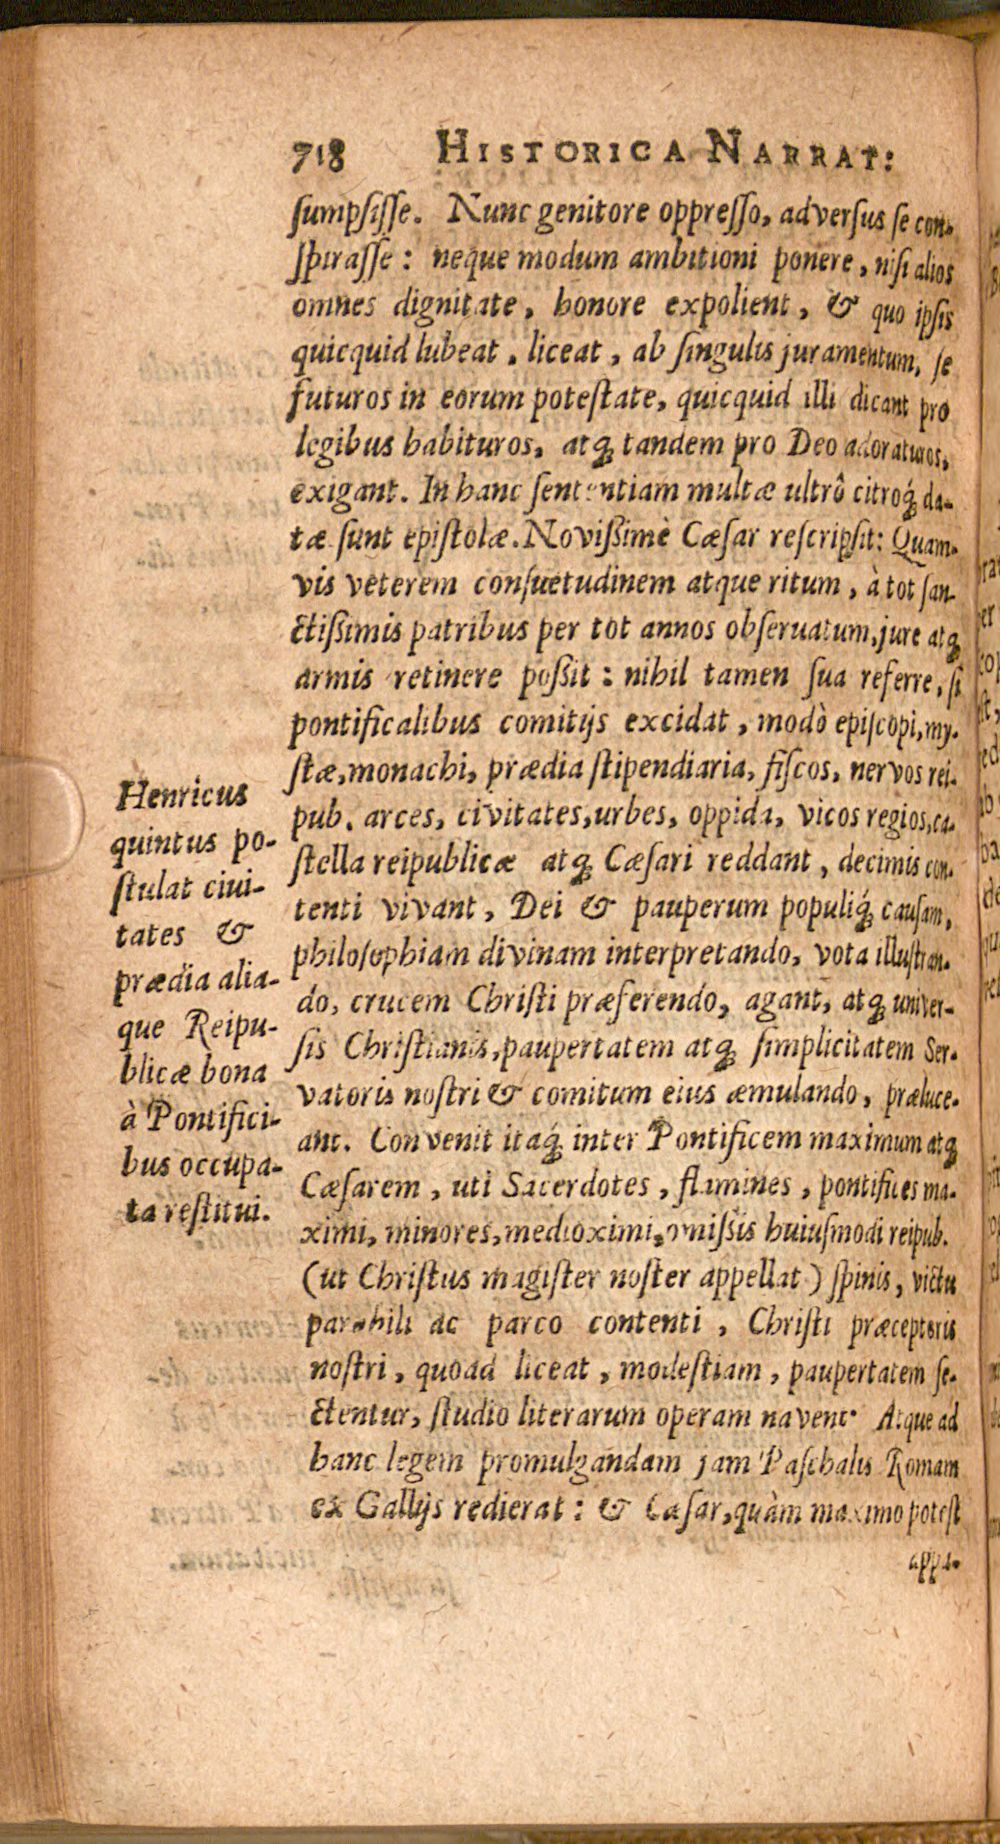 718 HISTORICA NARRAT:
sumpsisse. Nunc genitore oppresso, adversus se con-
spirasse: neque modum ambitioni ponere, nisi alios
omnes dignitate, honore expolient, & quo ipsis
quicquid lubeat, liceat, ab singulis juramentum, se
futuros in eorum potestate, quicquid illi dicant pro
legibus habituros, atq; tandem pro Deo adoraturos,
exigant. In hanc sententiam multæ ultrô citroq́; da-
tæ sunt epistolæ. Novissimè Cæsar rescripsit: Quam-
vis veterem consuetudinem atque ritum, à tot san-
ctissimis patribus per tot annos observatum, jure atq;
armis retinere possit: nihil tamen sua referre, si
pontificalibus comitijs excidat, modò episcopi, my-
stæ, monachi, prædia stipendiaria, fiscos, nervos rei-
pub. arces, civitates, urbes, oppida, vicos regios, ca-
stella reipublicæ atq; Cæsari reddant, decimis con-
tenti vivant, Dei & pauperum populiq́; causam,
philosophiam divinam interpretando, vota illustran-
do, crucem Christi præferendo, agant, atq; univer-
sis Christianis, paupertatem atq; simplicitatem Ser-
vatoris nostri & comitum eius æmulando, præluce-
ant. Convenit itaq́; inter Pontificem maximum atq;
Cæsarem, uti Sacerdotes, flamines, pontifices ma-
ximi, minores, medioximi, omissis huiusmodi reipub.
(ut Christus magister noster appellat) spinis, victu
parabili ac parco contenti, Christi præceptoris
nostri, quoad liceat, modestiam, paupertatem se-
ctentur, studio literarum operam navent. Atque ad
hanc legem promulgandam jam Paschalis Romam
ex Gallijs redierat: & Cæsar, quàm maximo potest
appa-
Henricus
quintus po-
stulat ciui-
tates &
prædia alia-
que Reipu-
blicæ bona
à Pontifici-
bus occupa-
ta restitui.